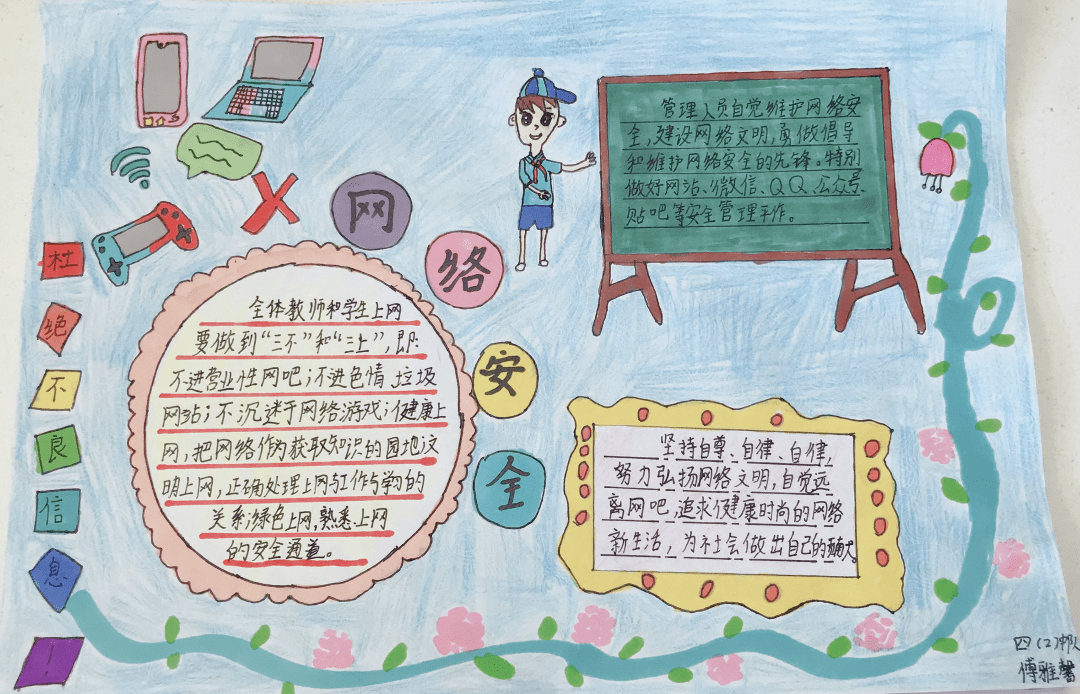 网络安全
杜绝不良信息！
管理人员自觉维护网络安
全，建设网络文明，勇做倡导
和维护网络安全的先锋。特别
做好网站、微信、QQ、公众号、
贴吧等安全管理工作。
全体教师和学生上网
要做到“三不”和“三上”，即：
不进营业性网吧；不进色情、垃圾
网站；不沉迷于网络游戏；健康上
网，把网络作为获取知识的园地；文
明上网，正确处理上网与工作与学习的
关系；绿色上网，熟悉上网
的安全通道。
坚持自尊、自律、自律，
努力弘扬网络文明，自觉远
离网吧，追求健康时尚的网络
新生活，为社会做出自己的
四（2）中队
傅雅馨